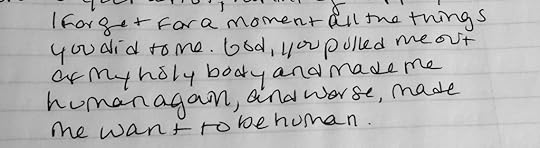 I forget for a moment all the things
you did to me. God, you pulled me out
of my holy body and made me
human again, and worse, made
me want to be human.